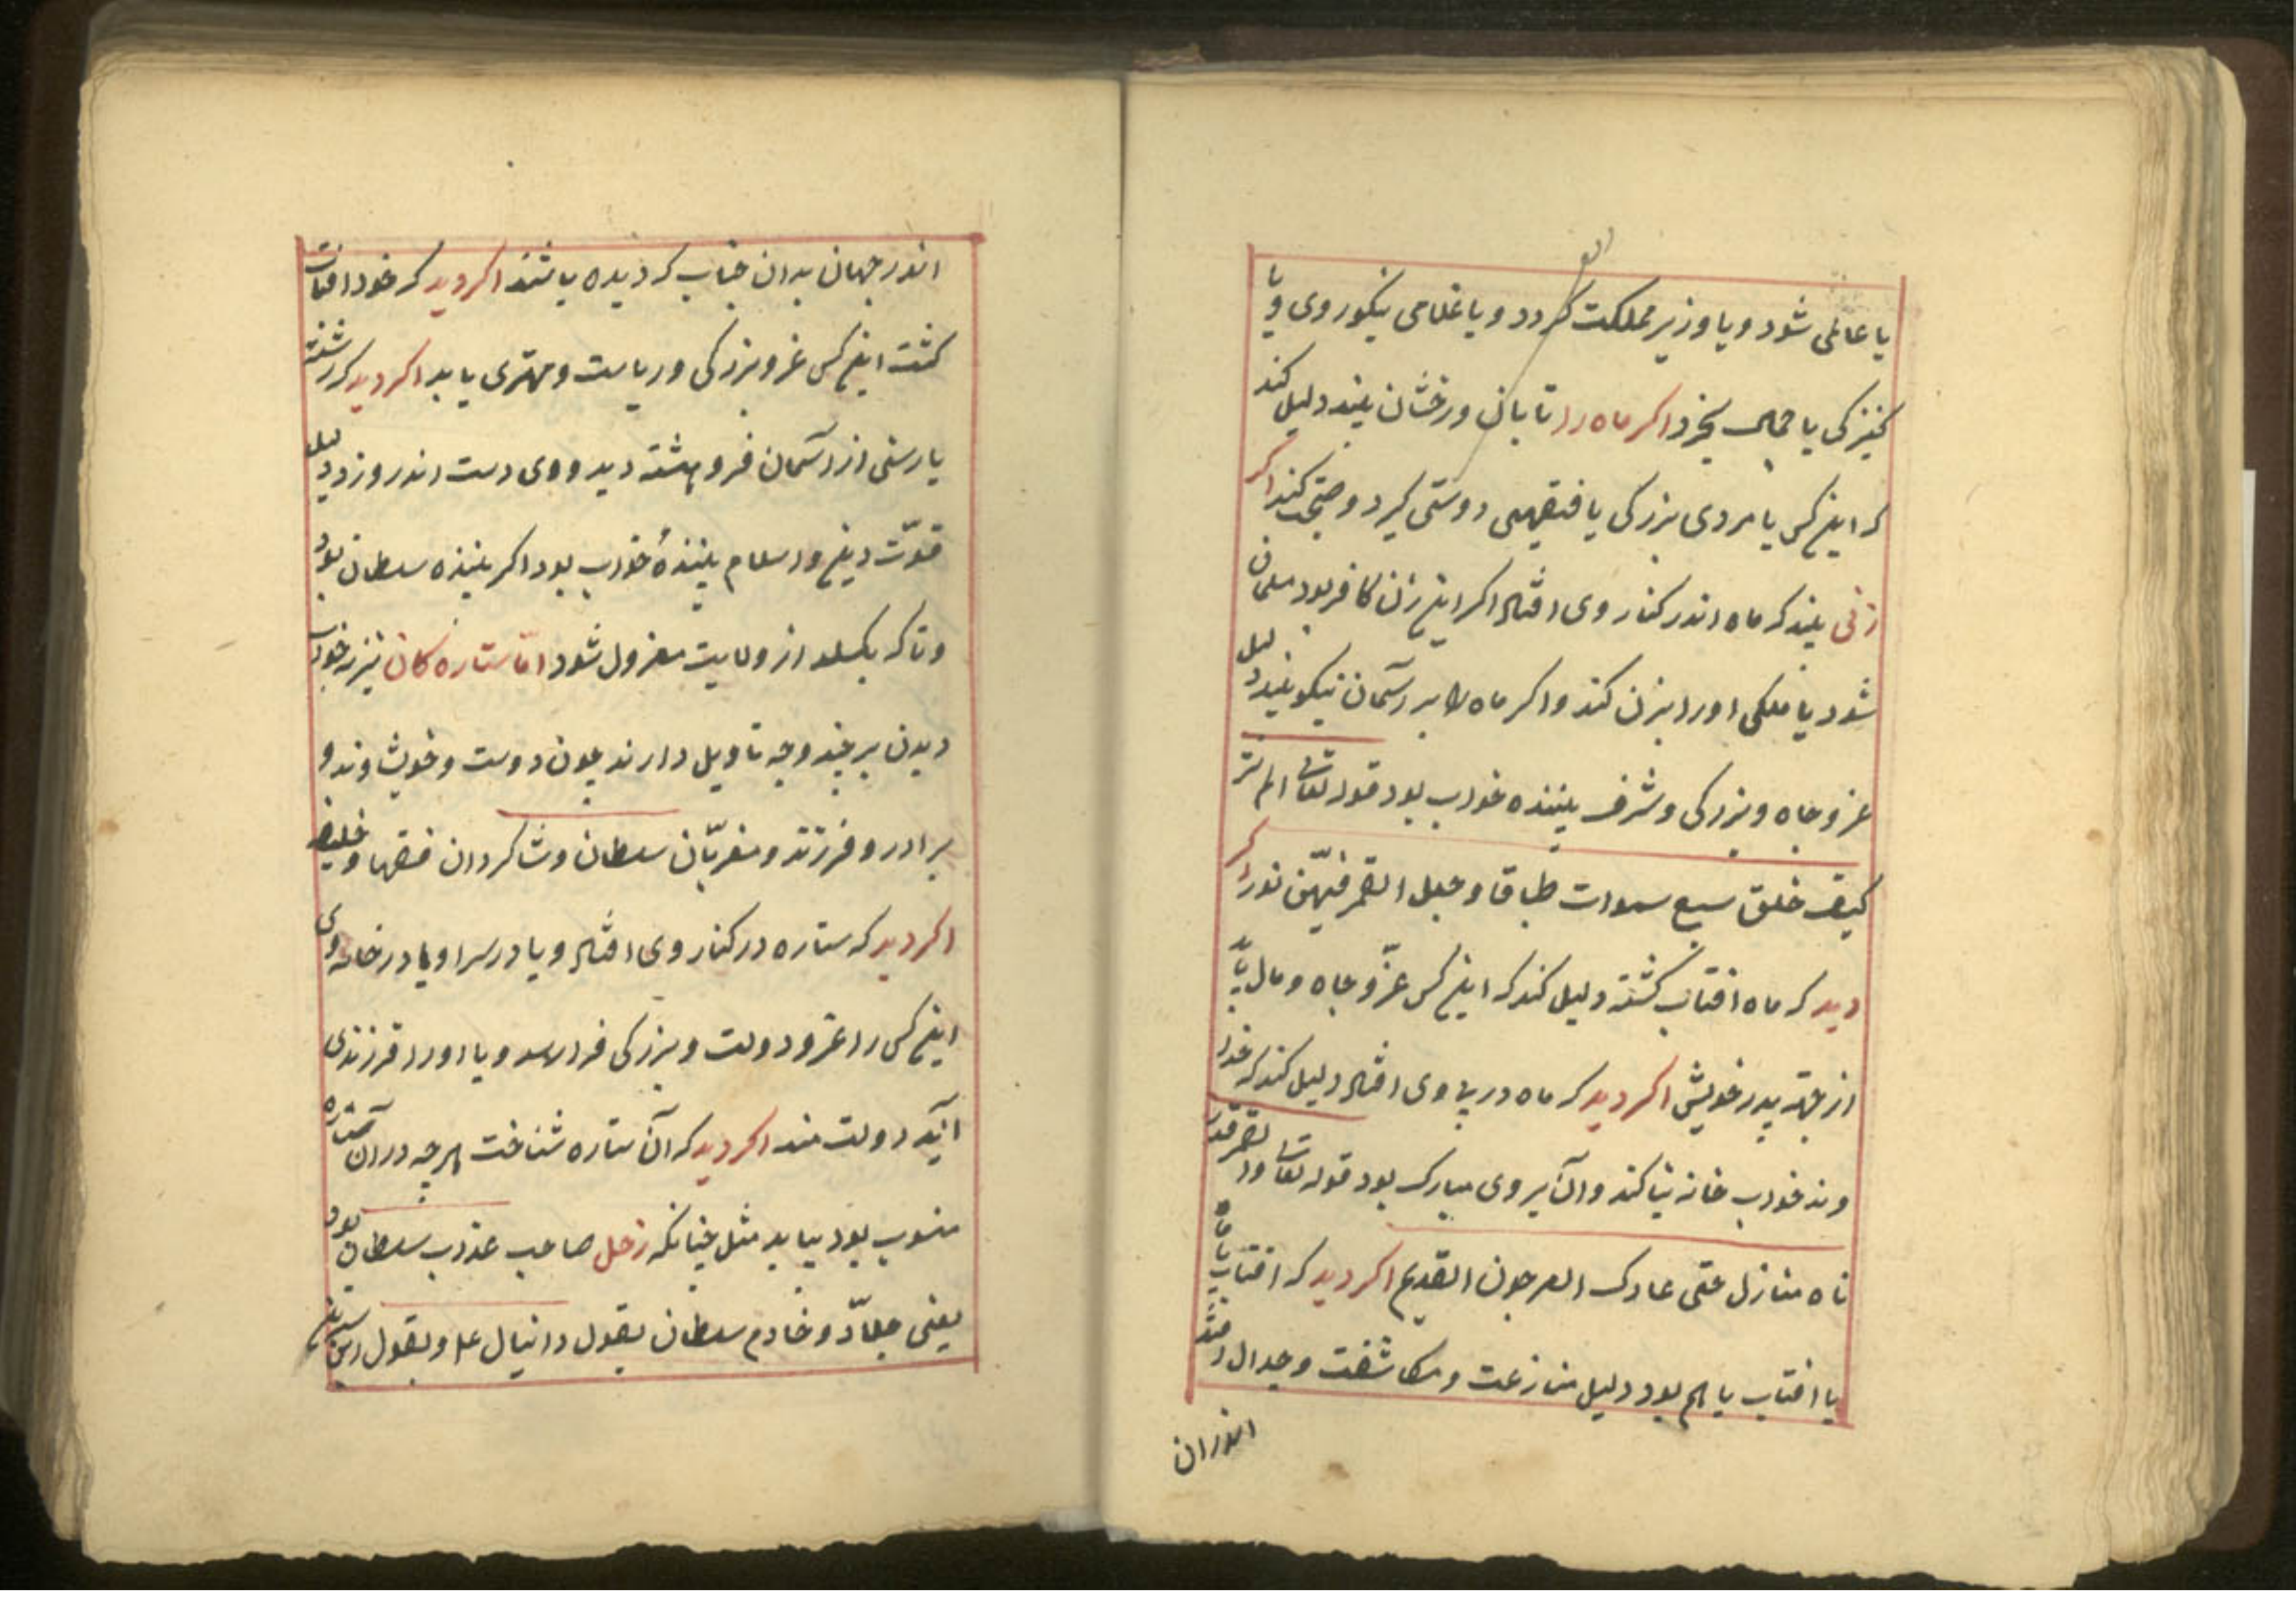 یا عاملی شود و یا وزیر مملکت کردد و یا غلامی نیکوروی و یا
کنیزکی با جمال بخرد اکر ماه را تابان و رخشان بیند دلیل کند
که این کس با مردی بزرکی یا فقیهی دوستی کیرد و صحبت کند اکر
زنی بیند که ماه اندر کنار وی افتاد اکر این زن کافر بود مسلمان
شود یا ملکی او را بزن کند و اکر ماه را بر آسمان نیکو بیند دلیل
عز و جاه و بزرکی و شرف بیننده خواب بود قوله تعالی الم تر
کیف خلق سبع سموات طباقا و جعل القمر فیهن نورا اکر
دید که ماه افتاب کشته دلیل کند که این کس عزّ و جاه و مال یابد
از جهة پدر خویش اکر دید که ماه در پاوی افتاد دلیل کند که خدا
وند خواب خانه بنا کند و آن بر وی مبارک بود قوله تعالی والقمر قدر
ناه منازل حتی عادک العرجون القدیم اکر دید که افتاب با ماه
یا افتاب با هم بود دلیل منازعت و مکاشفت و جدال افتد
اندران
اندر جهان بدان جناب کردیده باشند اکر دید که خود افتاب
کشت این کس عز و بزرکی و ریاست و مهتری یابد اکر دید که رشته
یا رسنی از آسمان فروهشته دید و وی دست اندرو زد دلیل
قوّت دین و اسلام بینندهٔ خواب بود اکر بیننده سلطان بود
و تاکه بکسلد از ولایت معزول شود امّا ستاره کان نیز بخواب
دیدن بر چند وجه تاویل دارند چون دوست و خویشاوند و
برادر و فرزند و مقربّان سلطان و شاکردان فقها و خلیفه
اکر دید که ستاره در کنار وی افتاد و یا در سرا و یا در خانه وی
این کس را عز و دولت و بزرکی فرا رسد و یا او را فرزندی
آید دولت مند اکر دید که آن ستاره شناخت هرچه در آن ستاره
منسوب بود بیابد مثل چنانکه زحل صاحب عذاب سلطان بود
یعنی جلاّد و خادم سلطان بقول دانیال ع و بقول ابن سیرین